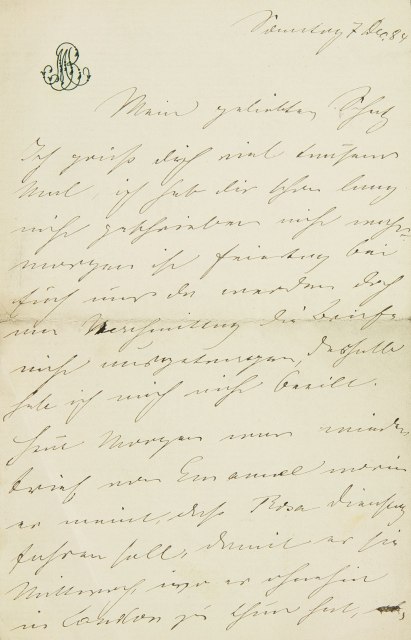 Sonntag 7 Dec. 84
Mein geliebter Schatz
Ich grüße dich viel tausend
Mal, ich hab dir schon lang
nicht geschrieben nicht wahr
morgen ist Feiertag bei
Euch und da werden doch
am Nachmittag die Briefe
nicht ausgetragen, deshalb
habe ich mich nicht beeilt.
Heute Morgen war wieder
Brief von Emanuel worin
er meint, daß Rosa Dienstag
fahren soll, damit er sie
Mittwoch, wo er ohnehin
in London zu thun hat,